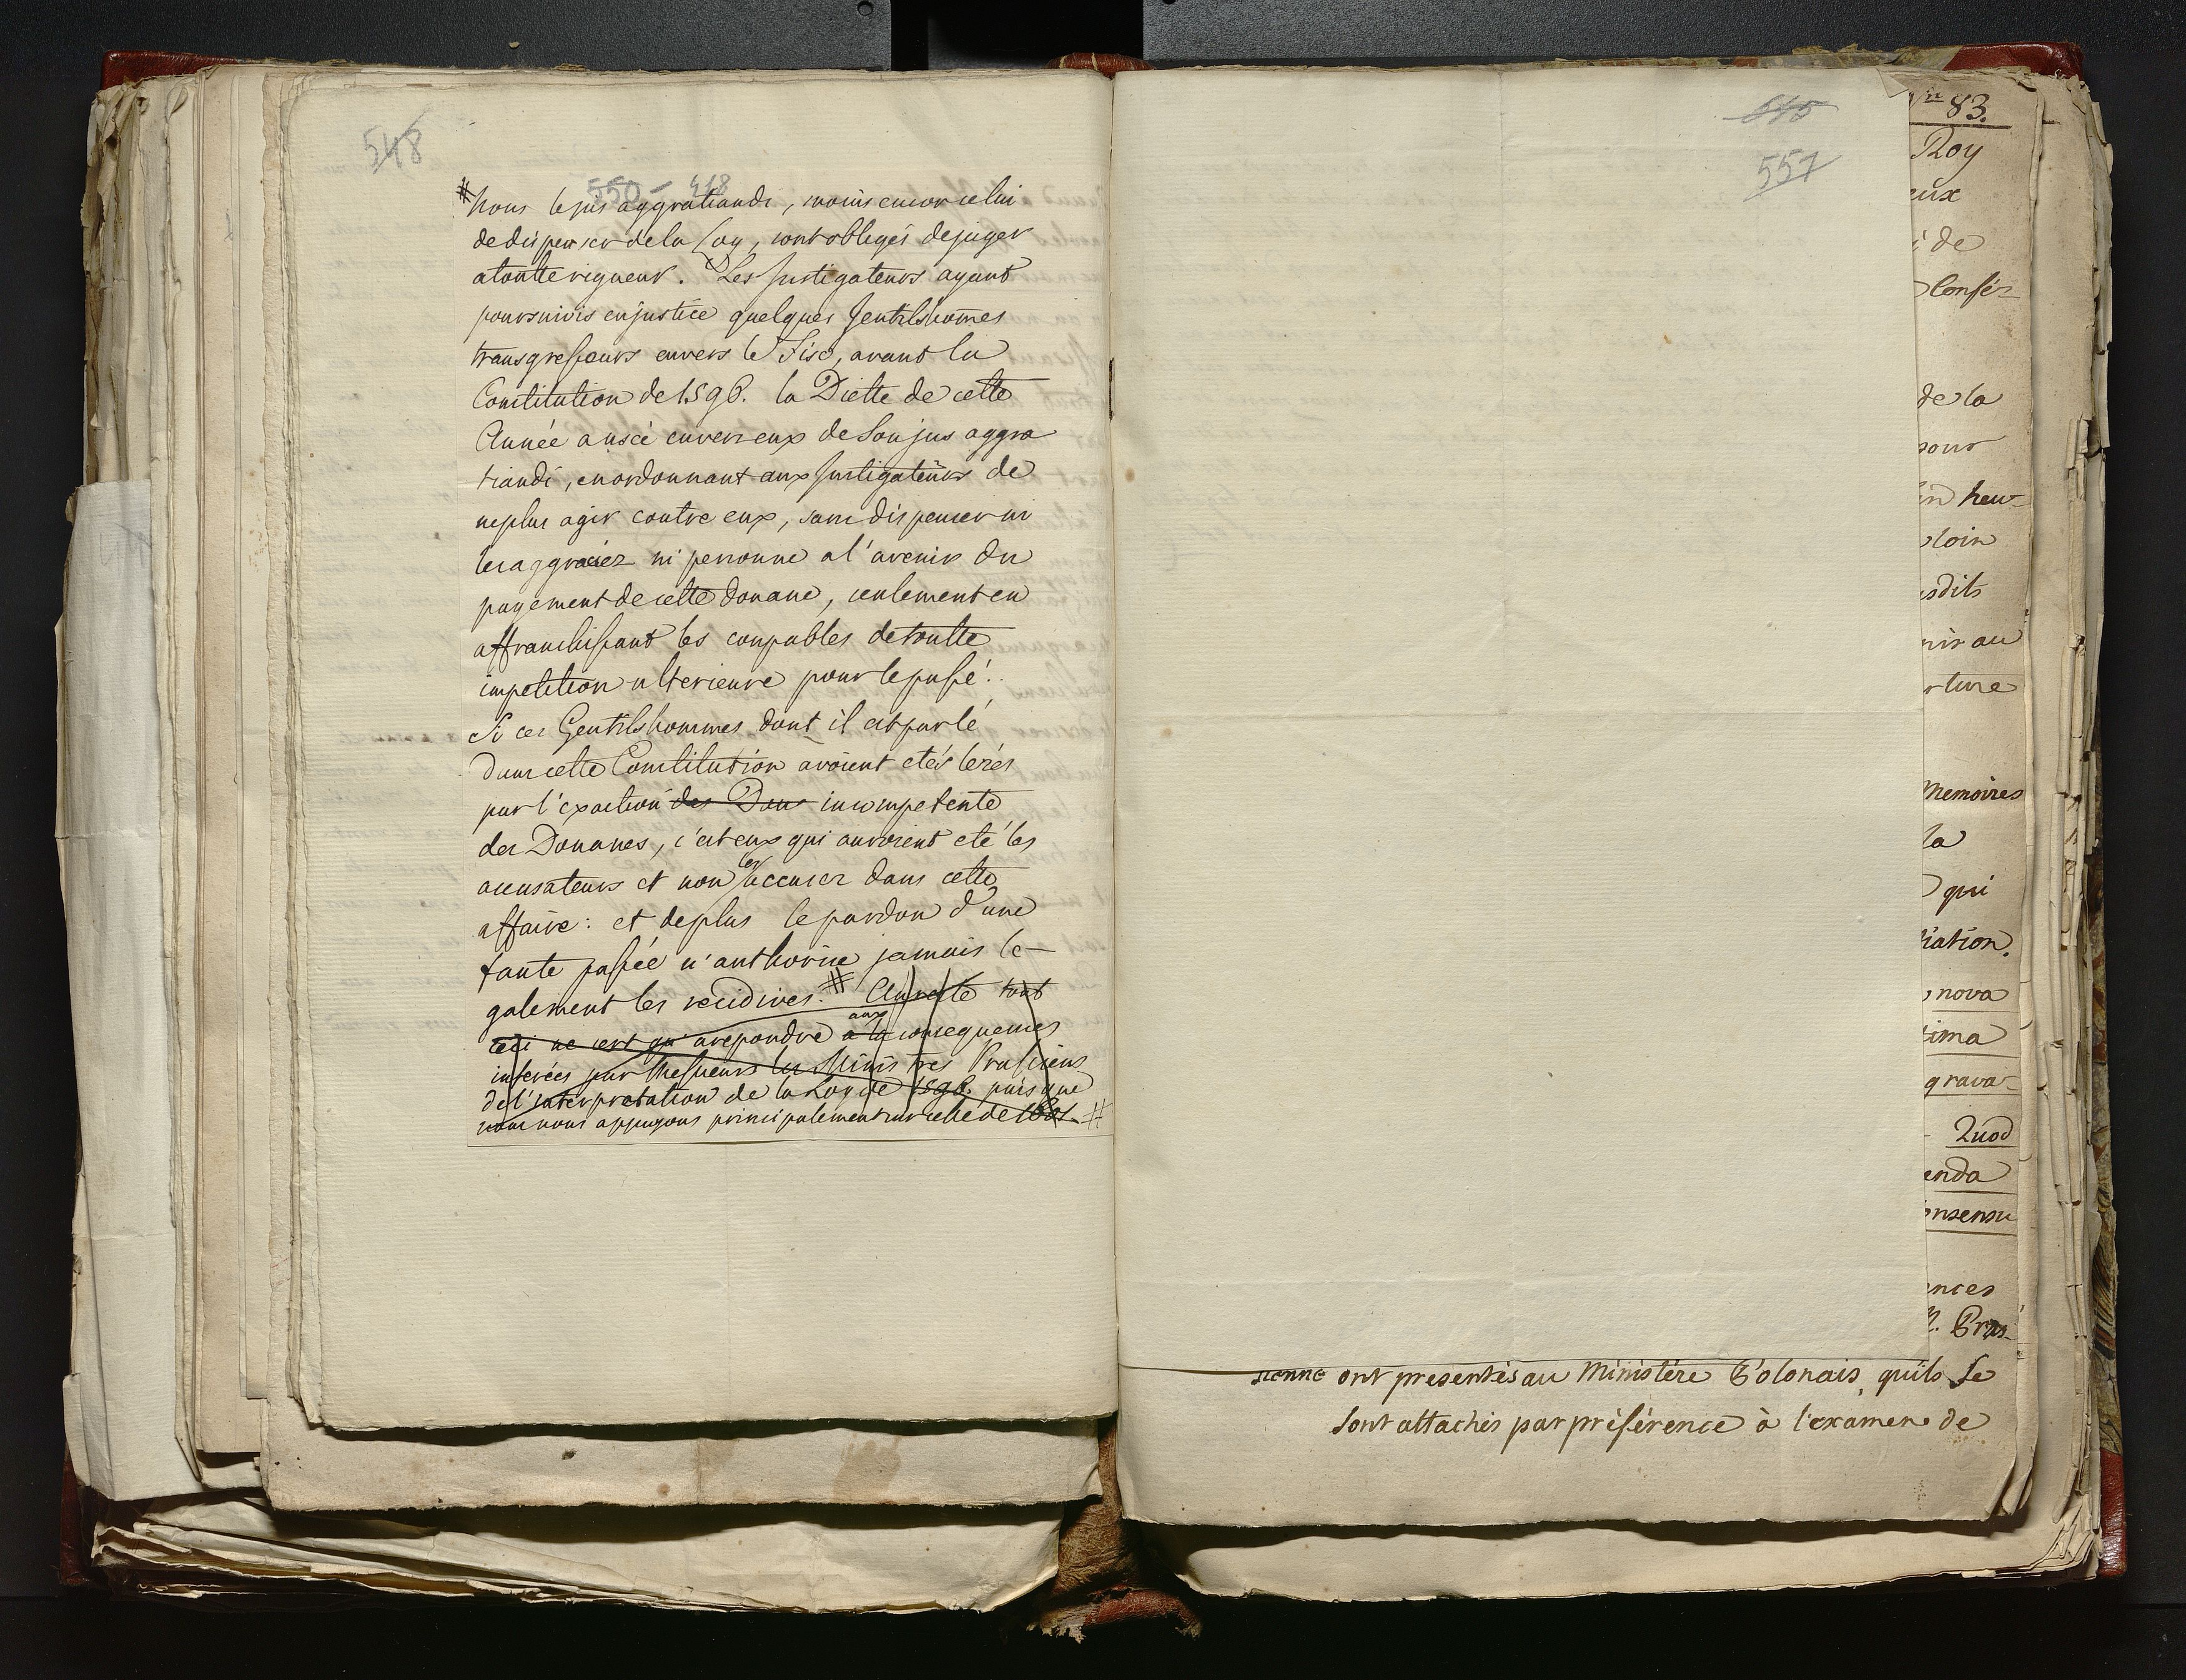 548
550 - 418
# nous le jus aggratiandi, moins encor celui
de dispenser de la Loy, sont obligés de juger
a toutte rigueur. Les Instigateurs ayant
poursuivis en justice quelques Gentilshomes
transgresseurs envers le Fisc, avant la
Constitution de 1596. la Diette de cette
Année a usée envers eux de Son jus aggra
tiandi, en ordonnant aux Instigateurs de
ne plus agir contre eux, sans dispenser ni
les aggraciez ni personne a l'avenir du
payement de cette douane, seulement en
affranchissant les coupables de toutte
impetition ulterieure pour le passé.
Si ces Gentilshommes dont il est parlé
dans cette Constitution avoient etés lezés
par l'exaction des Dou incompetente
des Douanes, c'est eux qui auroient eté les
accusateurs et non les accusez dans cette
affaire: et de plus le pardon d'une
faute passée n'authorise jamais le-
galement les recidives. # Au reste tout
ceci ne sert qu'a repondre a la aux consequences
inferées par Messieurs les Ministres Prussiens
de l'interpretation de la Loy de 1596. puisque
nous nous appuyons principalement sur celle de 1601. #
545
557
83.
Roy
eux
de
Confér-
de la
pour
heu-
loin
sdits
nir au
rture
Memoires
la
qui
iation.
nova
tima
grava-
Quod
enda
onsensu
ences
M. Prus-
sienne ont presentés au Ministère Polonais, quils se
sont attachés par préférence à l'examen de